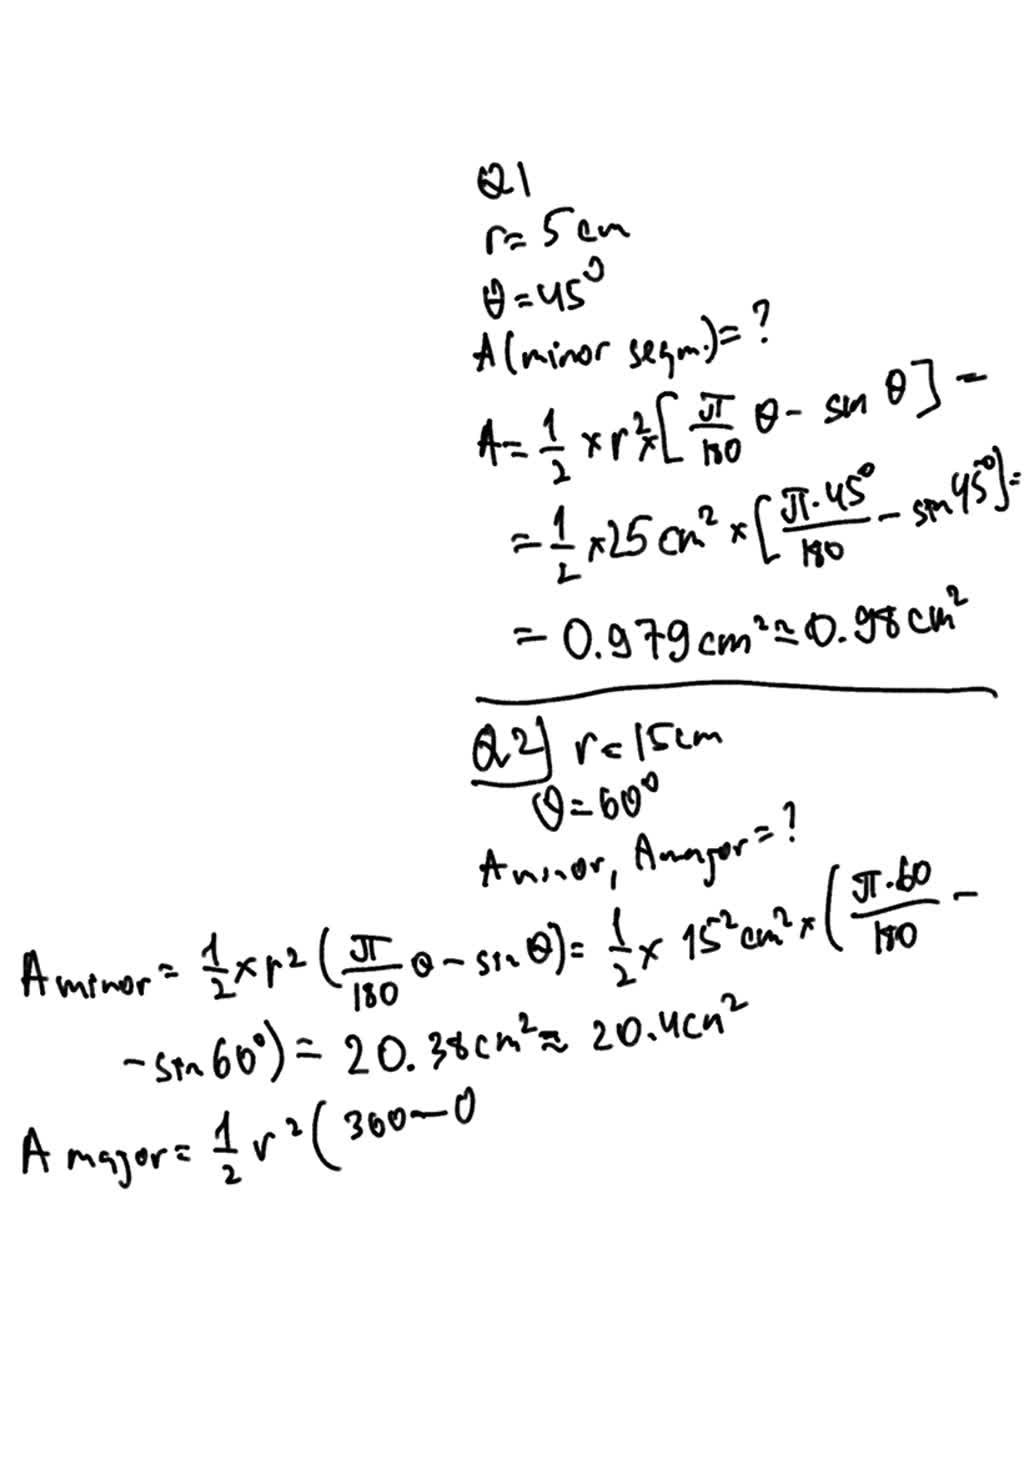 Q1
r= 5cm
θ=45⁰
A(minor segm.)=?
A= 1/2 ×r²×[π/180 θ- sin θ] =
= 1/2 ×25cm² ×[π·45⁰/180 - sin45⁰]=
= 0.979cm²≈0.98cm²
Q2] r=15cm
θ=60⁰
Aminor, Amajor=?
Aminor= 1/2×r²(π/180 θ-sin θ)= 1/2× 15²cm²×(π·60/180 -
-sin60⁰)= 20.38cm²≈ 20.4cm²
A major= 1/2 r²(360-θ